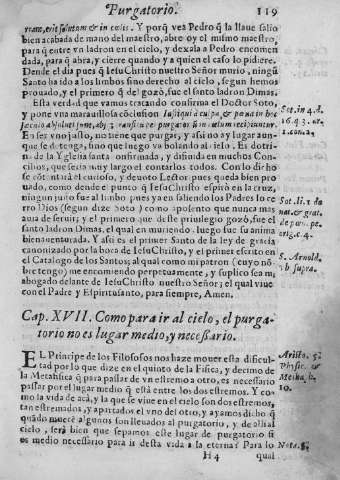 Purgatorio. 119
Y porq̃ vea Pedro q̃ la llaue salio
bien acabada de mano del maestro, abre oy el mismo maestro,
para q̃ entre vn ladron en el cielo, y dexala a Pedro encomen
dada, para q̃ abra, y cierre quando y a quien el caso lo pidiere.
Dende el dia pues q̃ Iesu Christo nuestro Señor murio, ningũ
Santo ha ido a los limbos sino derecho al cielo, segun hemos
prouado, y el primero q̃ del gozò, fue el santo ladron Dimas.
Esta verdad que vamos tractando confirma el Doctor Soto,
y pone vna marauillosa
En ser vno justo, no tiene que purgar, y assi no ay lugar aun-
que se detenga, sino que luego va bolando al cielo. Es dotri-
na de la Yglesia santa confirmada, y difinida en muchos Con-
cilios, que seria muy largo el contarlos todos. Con lo dicho
se cõtẽtarà el curioso, y deuoto Lector pues queda bien pro-
uado, como dende el punto q̃ Iesu Christo espirò en la cruz,
ningun justo fue al limbo pues ya en saliendo los Padres lo ce
rro Dios (segun dize Soto) como aposento que nunca mas
auia de seruir; y el primero que deste priuilegio gozò, fue el
santo ladron Dimas, el qual en muriendo, luego fue su anima
bienauenturada. Y assi es el primer Santo de la ley de gracia
canonizado por la boca de Iesu Christo, y el primer escrito en
el Catalogo de los Santos; al qual como a mi patron (cuyo nõ
bre tengo) me encomiendo perpetuamente, y suplico sea mi
abogado delante de Iesu Christo nuestro Señor; el qual viue
con el Padre y Espiritu santo, para siempre, Amen.
Cap. XVII. Como para ir al cielo, el purga-
torio no es lugar medio, y necessario.
EL Principe de los Filosofos nos haze mouer esta dificul-
tad por lo que dize en el quinto de la Fisica, y decimo de
la Metafisica q̃ para passar de vn estremo a otro, es necessario
passar por el lugar medio q̃ està entre los dos estremos. Y co-
mo la vida de acà, y la que se viue en el cielo son dos estremos,
tan estremados, y apartados el vno del otro, y ayamos dicho q̃
quãdo muere algunos son lleuados al purgatorio, y de alli al
cielo, serà bien que sepamos este lugar de purgatorio si
es medio necessario para ir desta vida a la eterna? Para lo
H 4 qual
Sot. in 4. d.
Sot. li. 1. de
nat. & grat.
S. Arnold.
vb supra.
Aristo. 5.
Physic. &
10.
Nota.